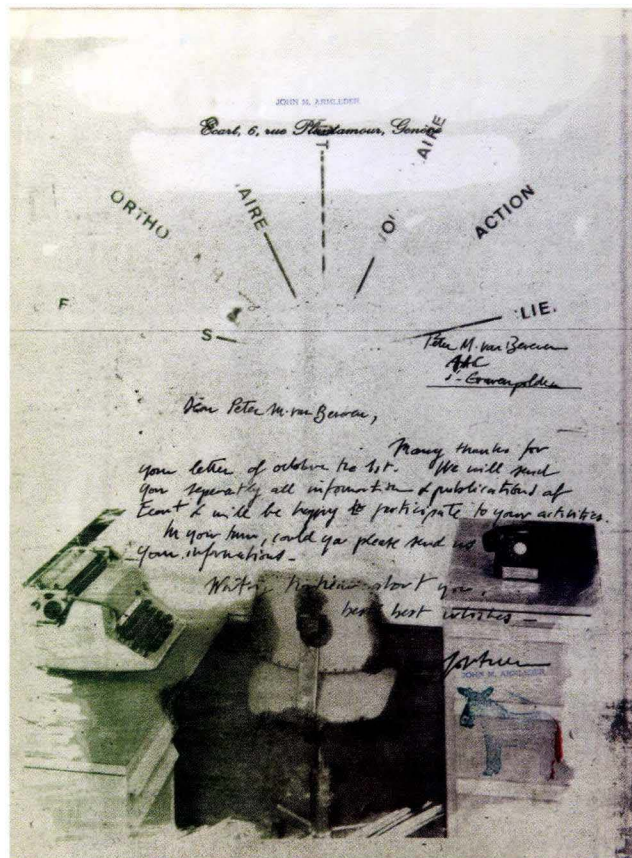 JOHN M. ARMLEDER
Ecart, 6, rue Plantamour, Genève
T
AIRE
ORTHO
AIRE
'O'
ACTION
F
S
LIE.
Peter M. van Beveren
Dear Peter M. van Beveren,
Many thanks for
your letter of octobre the 1st. We will send
you seperatly all information & publications of
Ecart & will be happy to participate to your activities.
In your turn, could you please send us
your informations -
you,
best best wishes -
JOHN M. ARMLEDER